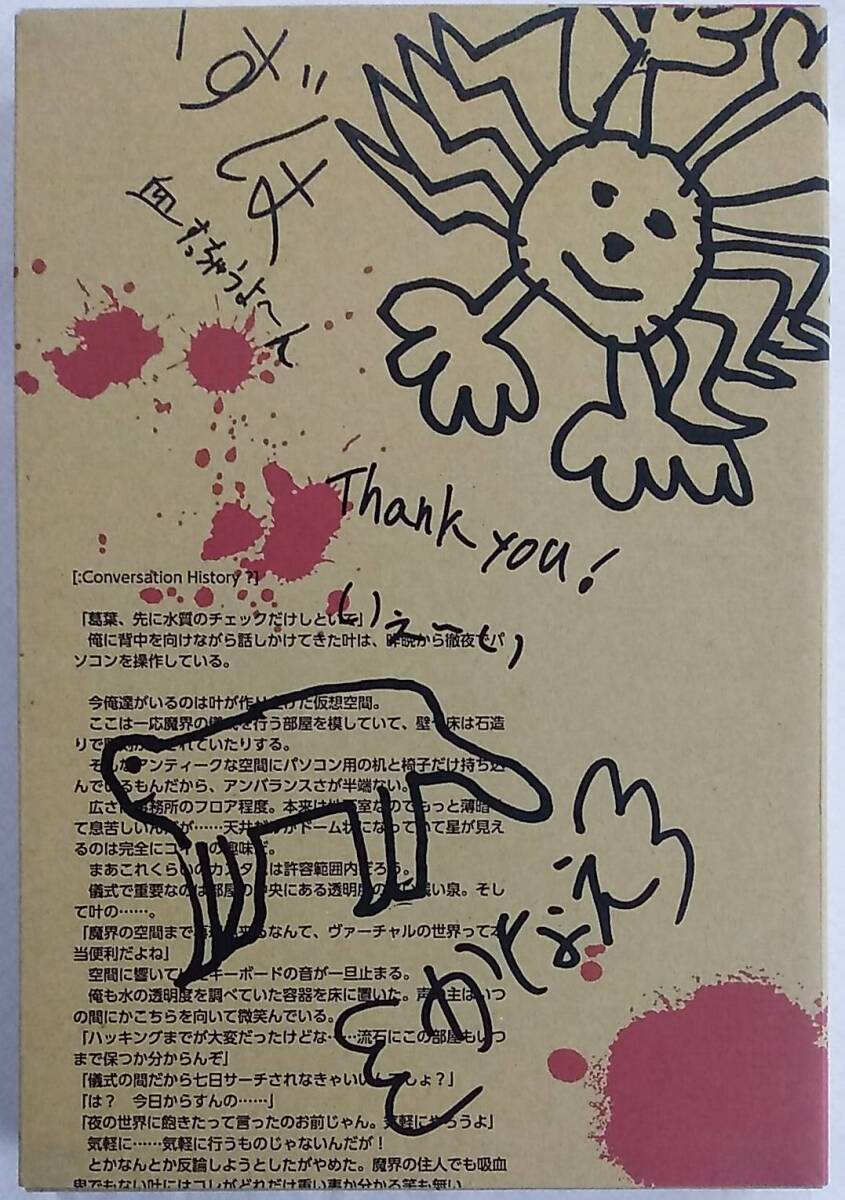 血すっちゃうよ〜ん
Thank you!
いぇ〜い
[:Conversation History ?]
「葛葉、先に水質のチェックだけしといて」
俺に背中を向けながら話しかけてきた叶は、昨晩から徹夜でパ
ソコンを操作している。
今俺達がいるのは叶が作り上げた仮想空間。
ここは一応魔界の儀式を行う部屋を模していて、壁や床は石造
りで されていたりする。
そんなアンティークな空間にパソコン用の机と椅子だけ持ち込
んでいるもんだから、アンバランスさが半端ない。
広さは事務所のフロア程度。本来は地下室なのでもっと薄暗
て息苦しいんだが……天井だけがドーム状になっていて星が見え
るのは完全にコイツの趣味だ。
まあこれくらいのカスタムは許容範囲内だろう。
儀式で重要なのは部屋の中央にある透明度の 浅い泉。そし
て叶の……。
「魔界の空間まで再現出来るなんて、ヴァーチャルの世界って本
当便利だよね」
空間に響いていたキーボードの音が一旦止まる。
俺も水の透明度を調べていた容器を床に置いた。声の主はいつ
の間にかこちらを向いて微笑んでいる。
「ハッキングまでが大変だったけどな……流石にこの部屋もいつ
まで保つか分からんぞ」
「儀式の間だから七日サーチされなきゃいいんでしょ？」
「は？　今日からすんの……」
「夜の世界に飽きたって言ったのお前じゃん。気軽にやろうよ」
気軽に……気軽に行うものじゃないんだが！
とかなんとか反論しようとしたがやめた。魔界の住人でも吸血
鬼でもない叶にはコレがどれだけ重い事か分かる筈も無い
かなえ